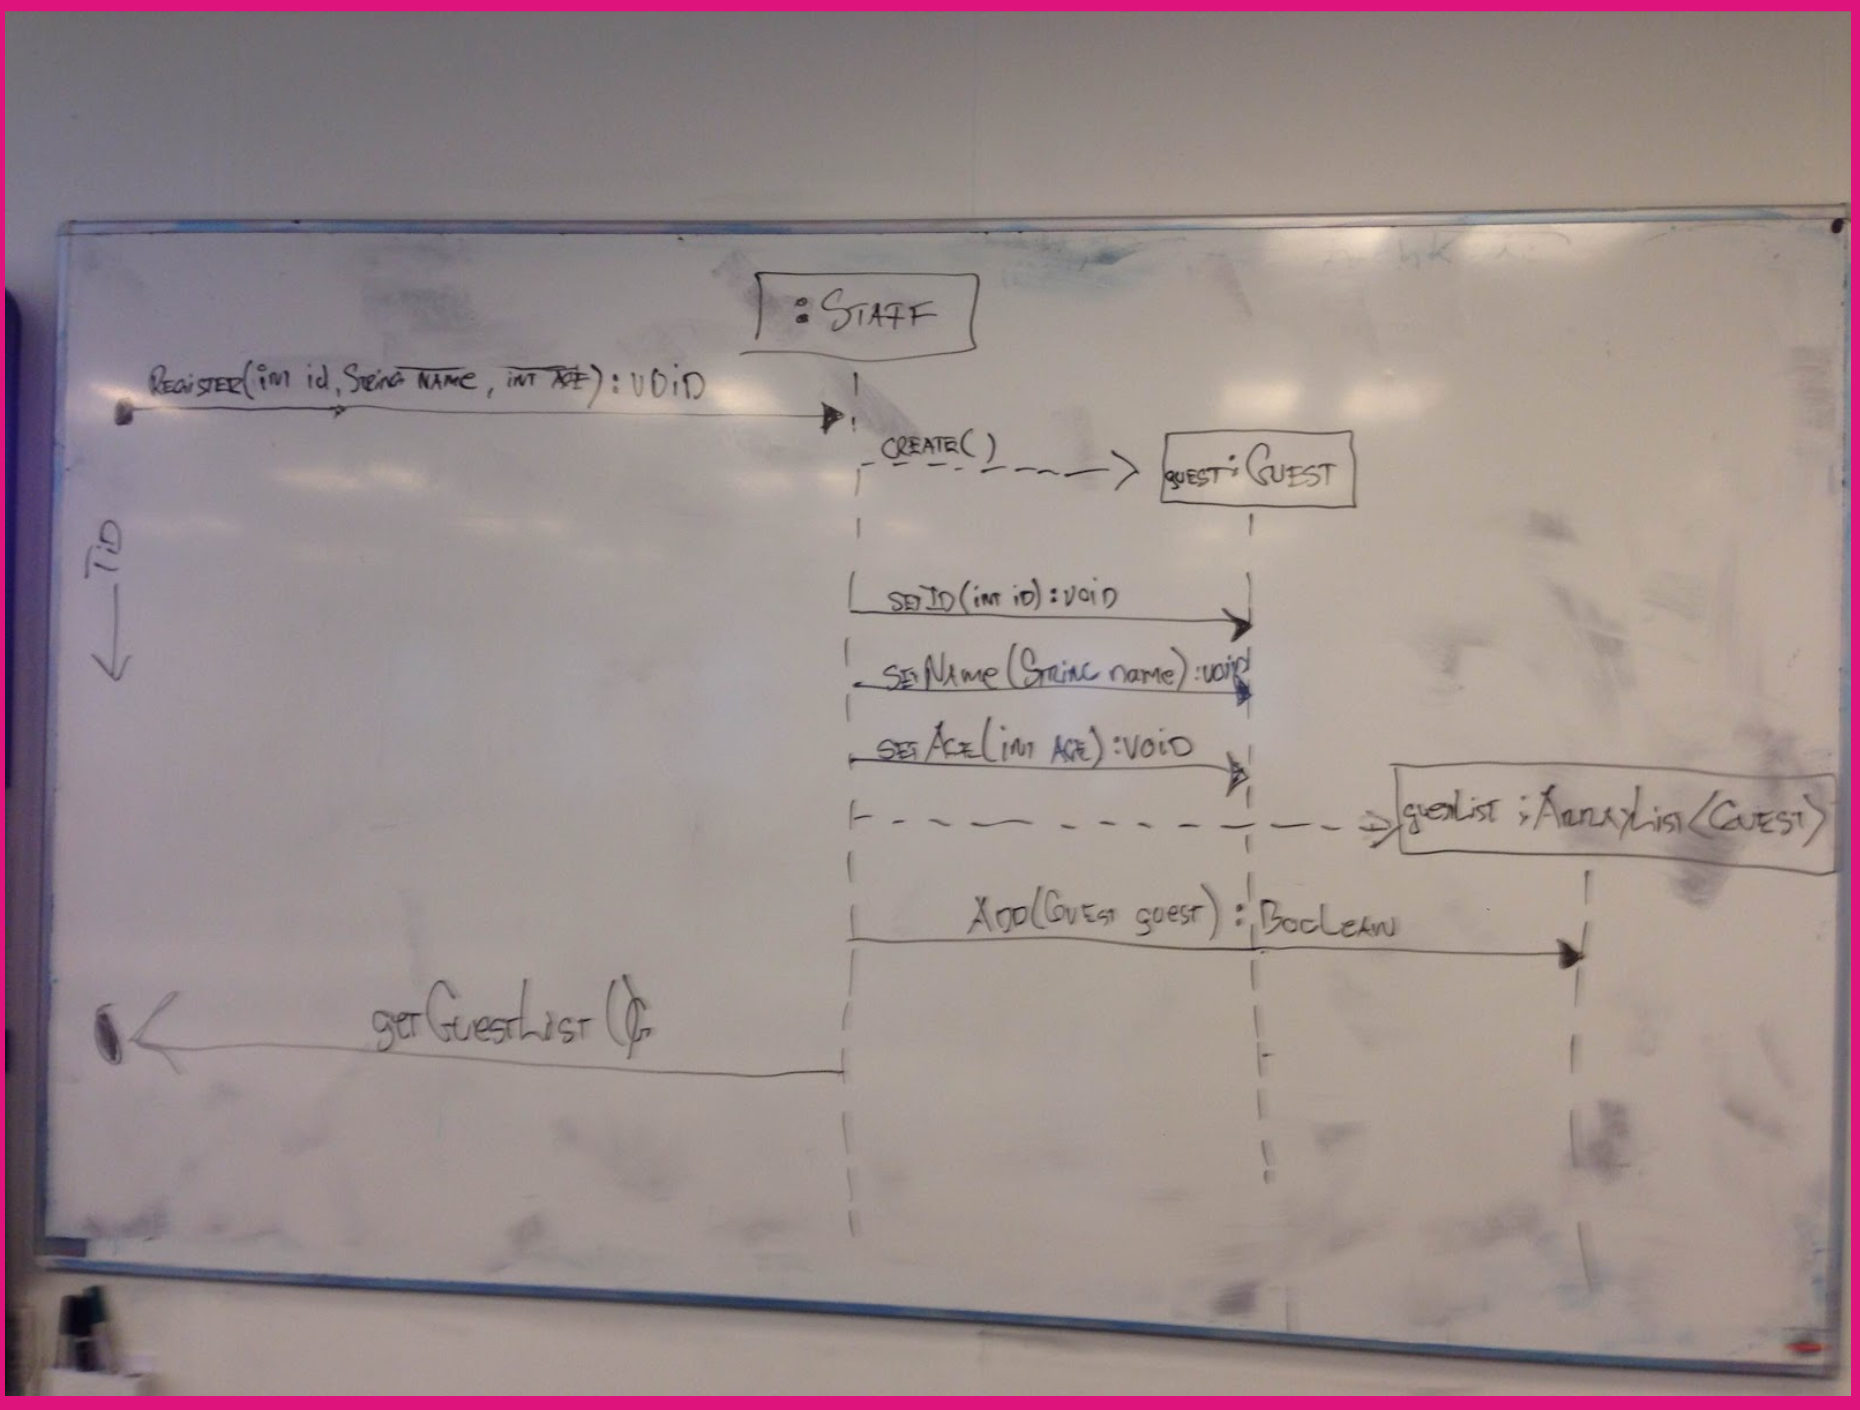 :STAFF
REGISTER(int id, STRING NAME, INT AGE):VOID
CREATE()
guest:GUEST
TID
SETID(int iD):VOID
SETName(STRING name):void
SETAGE(int AGE):VOID
guestList:ArrayList<GUEST>
ADD(GUEST guest):BOOLEAN
getGuestList()